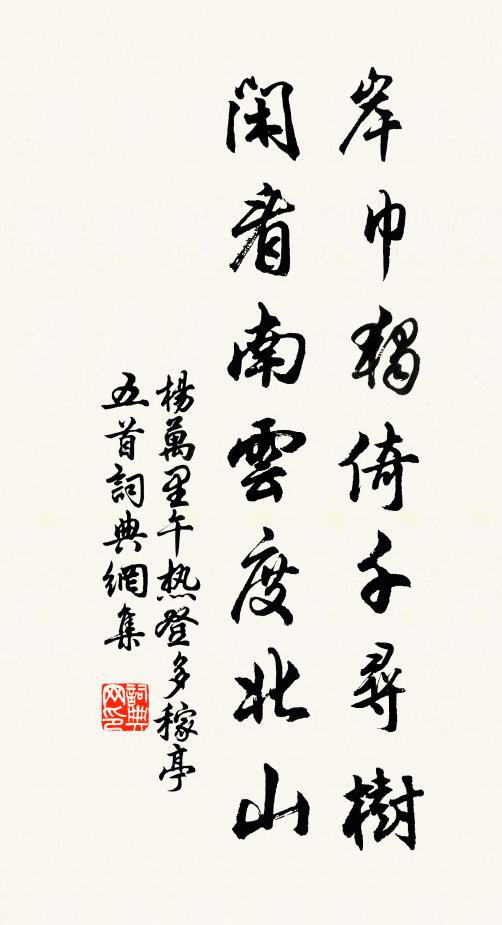 岸巾獨倚千尋樹
閑看南雲度北山
楊萬里午热登多稼亭
五首詞典網集
詞典
网印